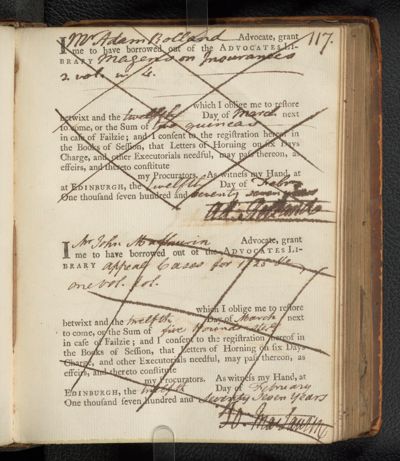 117.
I Mr Adam Bolland Advocate, grant
me to have borrowed out of the ADVOCATES LI-
BRARY Magens on Insurances
2 vols in 4.
which I oblige me to reſtore
betwixt and the twelfth Day of March next
to come, or the Sum of two guineas
in caſe of Failzie; and I conſent to the regiſtration hereof in
the Books of Seſſion, that Letters of Horning on ſix Days
Charge, and other Executorials needful, may paſs thereon, as
effeirs, and thereto conſtitute
my Procurators. As witneſs my Hand, at
at EDINBURGH, the twelfth Day of Febry
One thouſand ſeven hundred and seventy seven years
Ad: Bolland
I Mr John Maclaurin Advocate, grant
me to have borrowed out of the ADVOCATES LI-
BRARY appeal Cases for 1725 &c
one vol. fol.
which I oblige me to reſtore
betwixt and the twelfth Day of March next
to come, or the Sum of five Pounds Ster
in caſe of Failzie; and I conſent to the regiſtration hereof in
the Books of Seſſion, that Letters of Horning on ſix Days
Charge, and other Executorials needful, may paſs thereon, as
effeirs, and thereto conſtitute
my Procurators. As witneſs my Hand, at
EDINBURGH, the twelfth Day of February
One thouſand ſeven hundred and seventy Seven years
Jo. MacLaurin